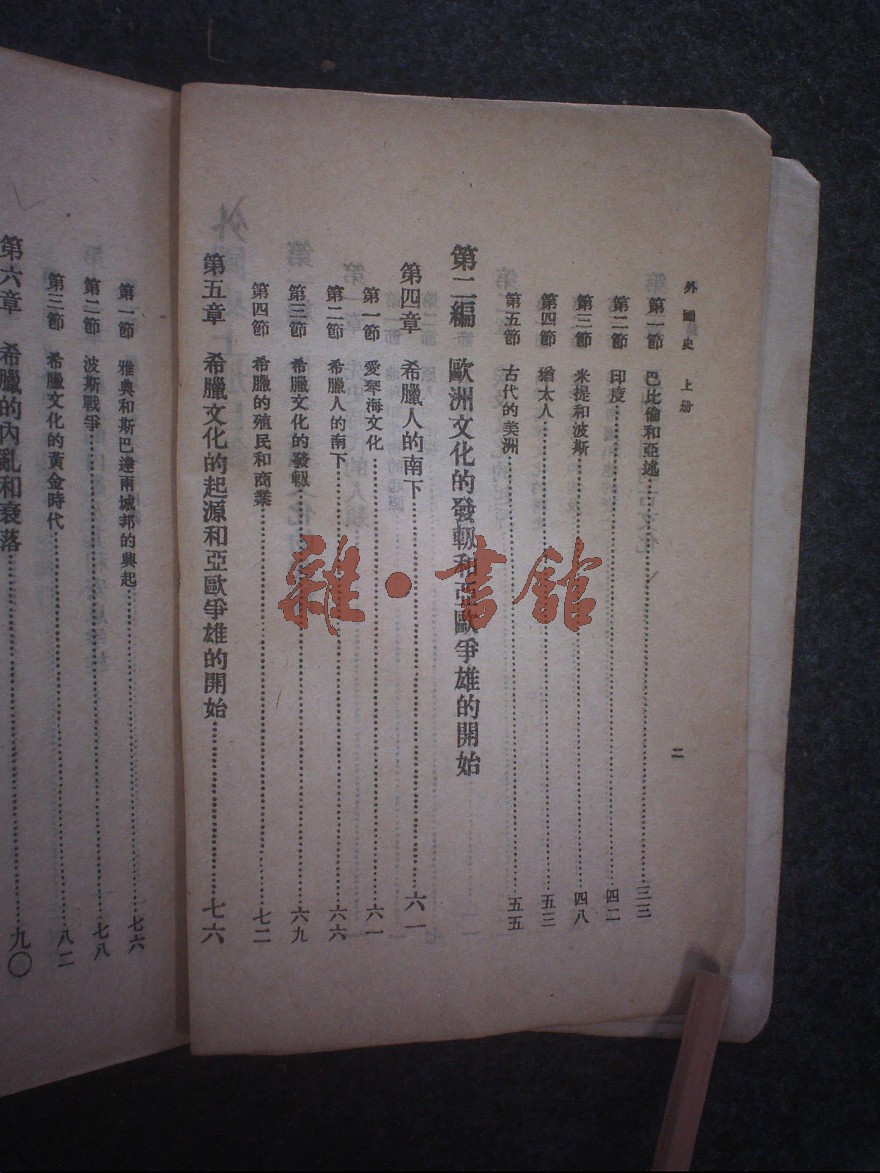 外國史 上册
二
第一節 巴比倫和亞述……三三
第二節 印度……四二
第三節 米提和波斯……四八
第四節 猶太人……五三
第五節 古代的美洲……五五
第二編 歐洲文化的發軔和亞歐爭雄的開始
第四章 希臘人的南下……六一
第一節 愛琴海文化……六一
第二節 希臘人的南下……六六
第三節 希臘文化的發軔……六九
第四節 希臘的殖民和商業……七二
第五章 希臘文化的起源和亞歐爭雄的開始……七六
第一節 雅典和斯巴達兩城邦的興起……七六
第二節 波斯戰爭……七八
第三節 希臘文化的黃金時代……八二
第六章 希臘的內亂和衰落……九〇
雜·書館